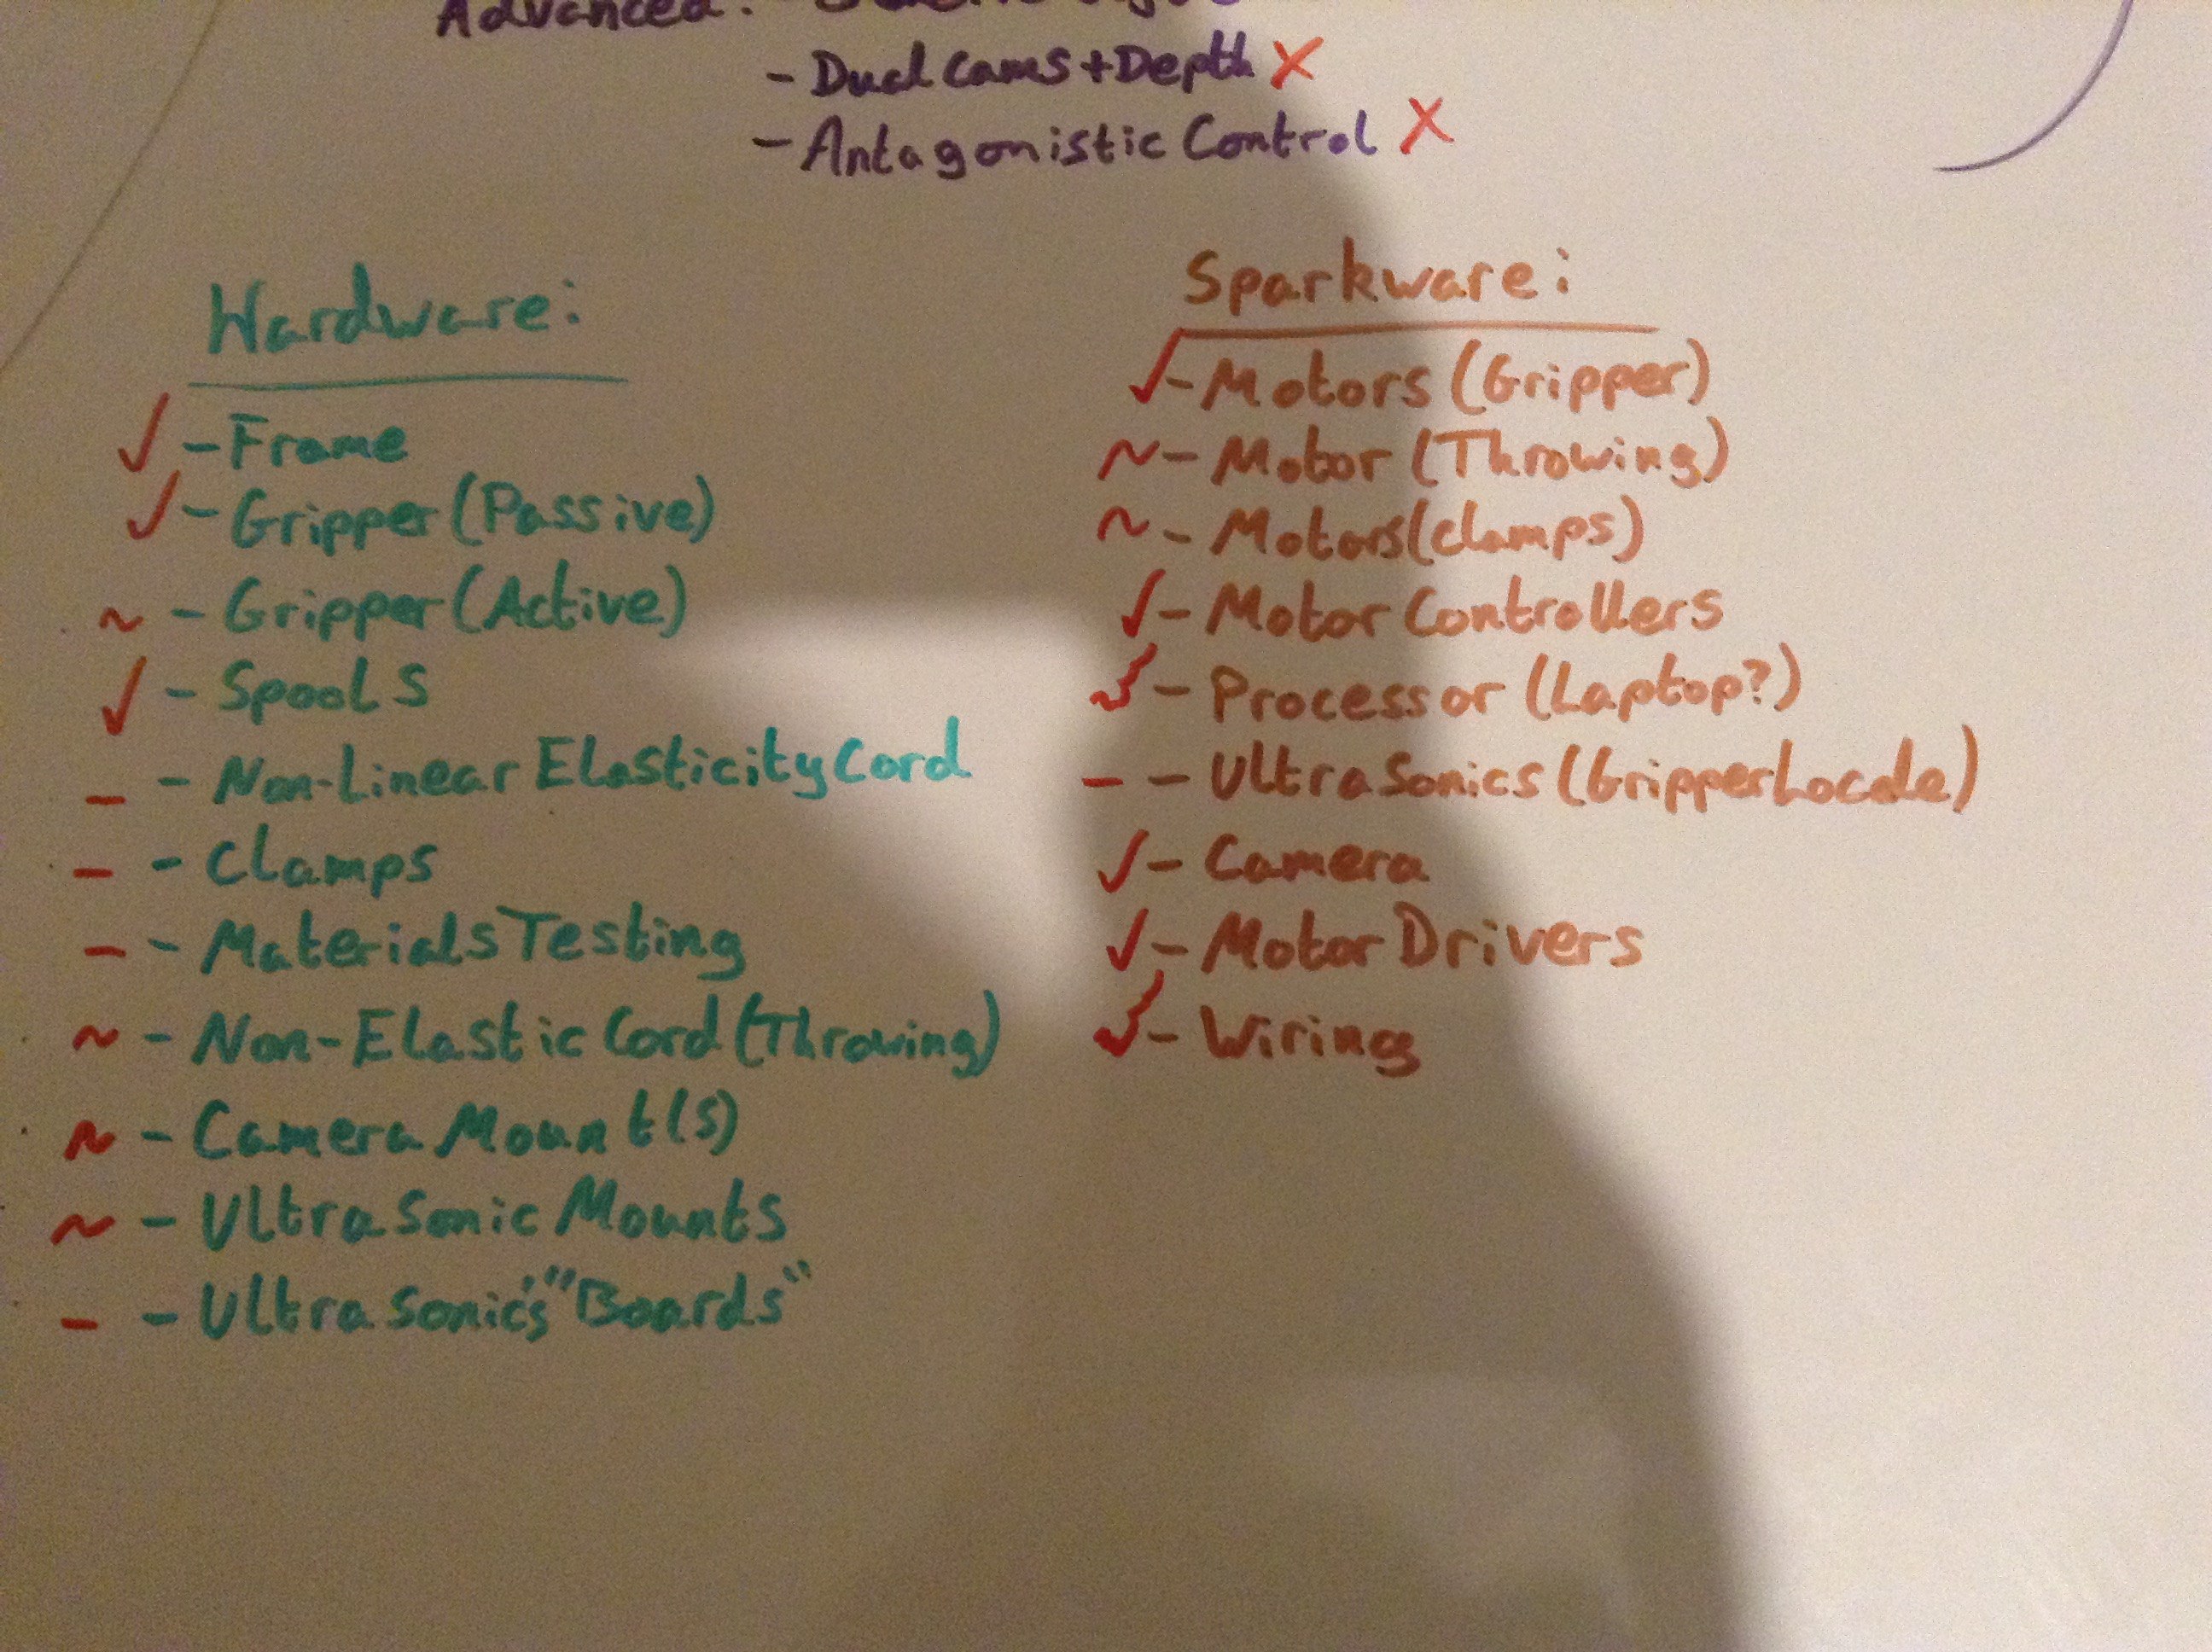 Advanced: -
- Dual Cams+Depth X
- Antagonistic Control X
Hardware:
✓ - Frame
✓ - Gripper (Passive)
~ - Gripper (Active)
✓ - Spools
- - Non-Linear Elasticity Cord
- - Clamps
- - Materials Testing
~ - Non-Elastic Cord (Throwing)
~ - Camera Mount(s)
~ - Ultrasonic Mounts
- - Ultrasonic's "Boards"
Sparkware:
✓ - Motors (Gripper)
~ - Motor (Throwing)
~ - Motors (clamps)
✓ - Motor Controllers
✓ - Processor (Laptop?)
- - Ultrasonics (Gripper Locale)
✓ - Camera
✓ - Motor Drivers
✓ - Wiring